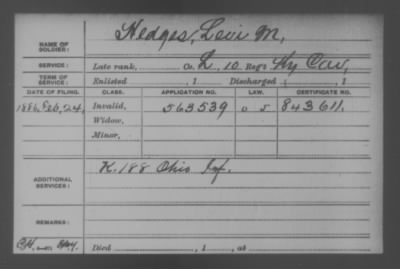 Hedges, Levi M,
NAME OF SOLDIER:
SERVICE: Late rank, Co. L, 10 Reg't Ky Cav,
TERM OF SERVICE: Enlisted , 1 Discharged , 1
DATE OF FILING. CLASS. APPLICATION NO. LAW. CERTIFICATE NO.
1886, Feb, 24, Invalid, 563539 O S 843611.
Widow,
Minor,
K. 188 Ohio Inf.
ADDITIONAL SERVICES:
REMARKS:
Died , 1 , at